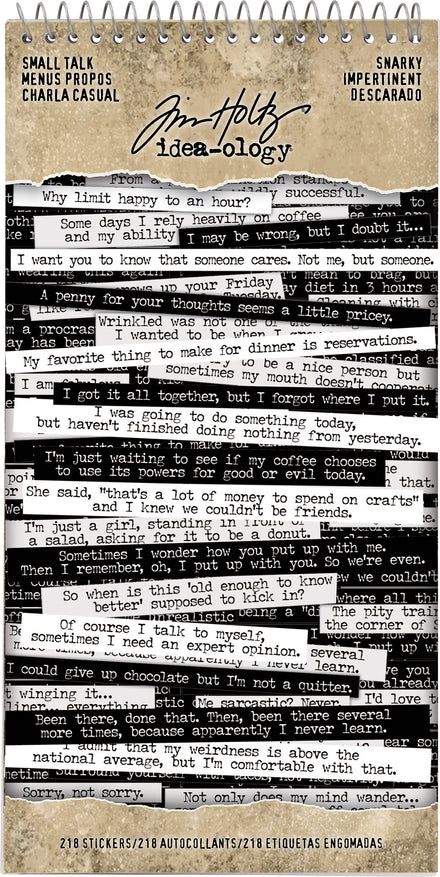 SMALL TALK
MENUS PROPOS
CHARLA CASUAL
SNARKY
IMPERTINENT
DESCARADO
Tim Holtz
idea-ology
wildly successful.
Why limit happy to an hour?
Some days I rely heavily on coffee
and my ability
I may be wrong, but I doubt it...
I want you to know that someone cares. Not me, but someone.
wearing this again
mean to brag, but
up your Friday
my diet in 3 hours
A penny for your thoughts seems a little pricey.
Wrinkled was not one of the
I wanted to be when I
My favorite thing to make for dinner is reservations.
to be a nice person but
sometimes my mouth doesn't
I am fabulous
I got it all together, but I forgot where I put it.
I was going to do something today,
but haven't finished doing nothing from yesterday.
I'm just waiting to see if my coffee chooses
to use its powers for good or evil today.
She said, "that's a lot of money to spend on crafts"
and I knew we couldn't be friends.
I'm just a girl, standing in front of
a salad, asking for it to be a donut.
Sometimes I wonder how you put up with me.
Then I remember, oh, I put up with you. So we're even.
So when is this 'old enough to know
better' supposed to kick in?
unrealistic
being a
The pity train
the corner of
Of course I talk to myself,
sometimes I need an expert opinion.
several
more times, because apparently I never learn.
I could give up chocolate but I'm not a quitter.
winging it...
Me sarcastic? Never.
I'd love to
Been there, done that. Then, been there several
more times, because apparently I never learn.
I admit that my weirdness is above the
national average, but I'm comfortable with that.
surround yourself with tacos, not
Sorry, not sorry.
Not only does my mind wander...
218 STICKERS/218 AUTOCOLLANTS/218 ETIQUETAS ENGOMADAS